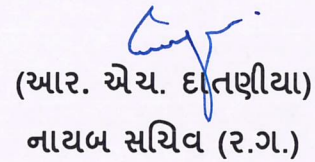 (આર. એચ. દાતણીયા)
નાયબ સચિવ (ર.ગ.)